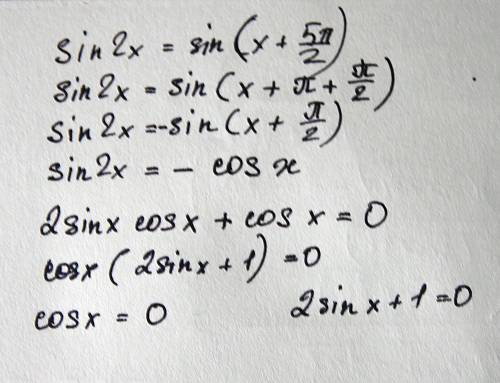 sin 2x = sin (x + 5π/2)
sin 2x = sin (x + π + π/2)
sin 2x = -sin (x + π/2)
sin 2x = - cos x
2 sinx cosx + cos x = 0
cosx (2sinx + 1) = 0
cosx = 0 2sin x + 1 = 0